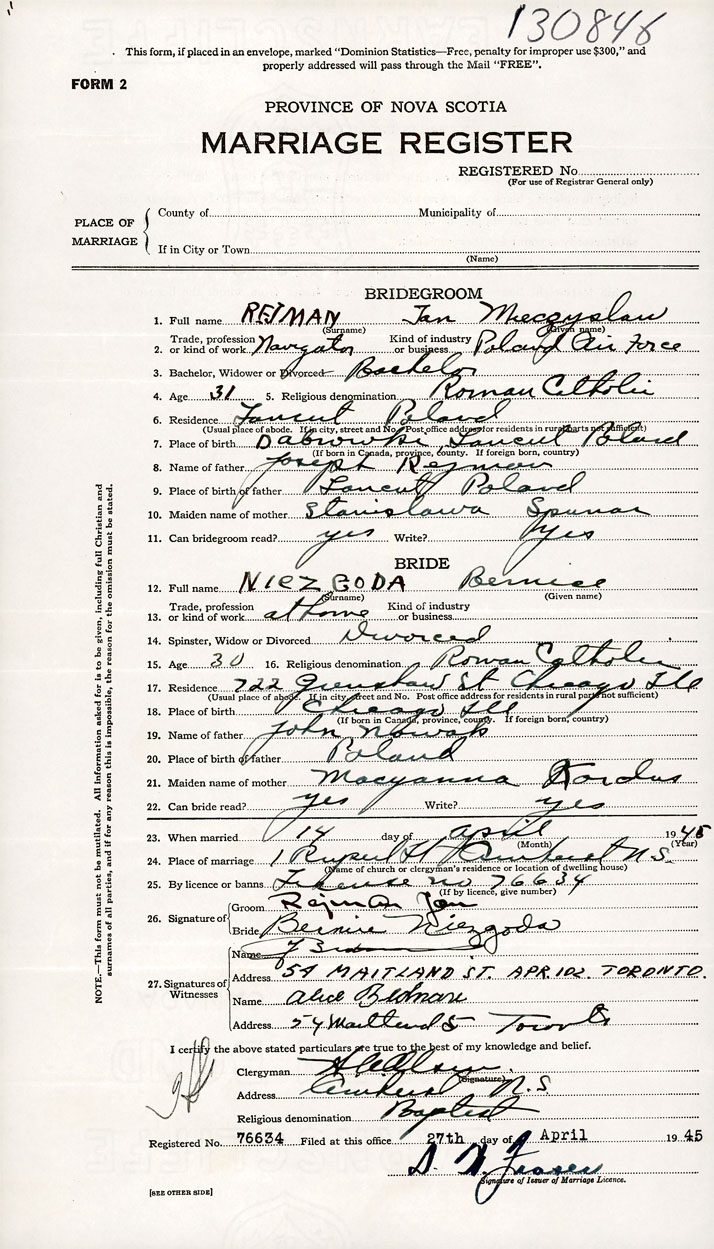 130846
This form, if placed in an envelope, marked "Dominion Statistics—Free, penalty for improper use $300," and
properly addressed will pass through the Mail "FREE".
FORM 2
PROVINCE OF NOVA SCOTIA
MARRIAGE REGISTER
REGISTERED No.
(For use of Registrar General only)
PLACE OF MARRIAGE
County of Municipality of
If in City or Town
(Name)
BRIDEGROOM
1. Full name REJMAN Jan Mieczyslaw
(Surname) (Given name)
Trade, profession Kind of industry
2. or kind of work Navigator or business Poland Air Force
3. Bachelor, Widower or Divorced Bachelor
4. Age 31 5. Religious denomination Roman Catholic
6. Residence Lancut Poland
(Usual place of abode. If in city, street and No. Post office address for residents in rural parts not sufficient)
7. Place of birth Dabrowki Lancut Poland
(If born in Canada, province, county. If foreign born, country)
8. Name of father Joseph Rejman
9. Place of birth of father Lancut Poland
10. Maiden name of mother Stanislawa Spunar
11. Can bridegroom read? yes Write? yes
BRIDE
12. Full name NIEZGODA Bernice
(Surname) (Given name)
Trade, profession Kind of industry
13. or kind of work at home or business
14. Spinster, Widow or Divorced Divorced
15. Age 30 16. Religious denomination Roman Catholic
17. Residence 722 Grenshaw St Chicago Ill
(Usual place of abode. If in city, street and No. Post office address for residents in rural parts not sufficient)
18. Place of birth Chicago Ill
(If born in Canada, province, county. If foreign born, country)
19. Name of father John Nowak
20. Place of birth of father Poland
21. Maiden name of mother Macyanna Kordus
22. Can bride read? yes Write? yes
23. When married 14 day of April 1945
(Month) (Year)
24. Place of marriage 1 Rupert St Amherst N.S.
(Name of church or clergyman's residence or location of dwelling house)
25. By licence or banns License no 76634
(If by licence, give number)
26. Signature of
Groom Rejman Jan
Bride Bernice Niezgoda
27. Signatures of Witnesses
Name
Address 54 MAITLAND ST. APR. 102. TORONTO.
Name Alice
Address 54 Maitland S Toronto
I certify the above stated particulars are true to the best of my knowledge and belief.
Clergyman
(Signature)
Address Amherst N.S.
Religious denomination Baptist
Registered No. 76634 Filed at this office 27th day of April 1945
Fraser
Signature of Issuer of Marriage Licence.
[SEE OTHER SIDE]
NOTE.—This form must not be mutilated. All information asked for is to be given, including full Christian and
surnames of all parties, and if for any reason this is impossible, the reason for the omission must be stated.